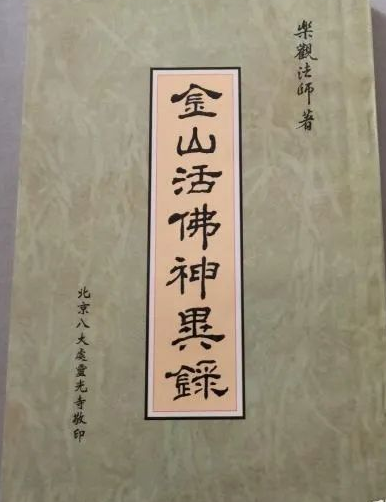 樂觀法師著
金山活佛神異錄
北京八大處靈光寺敬印